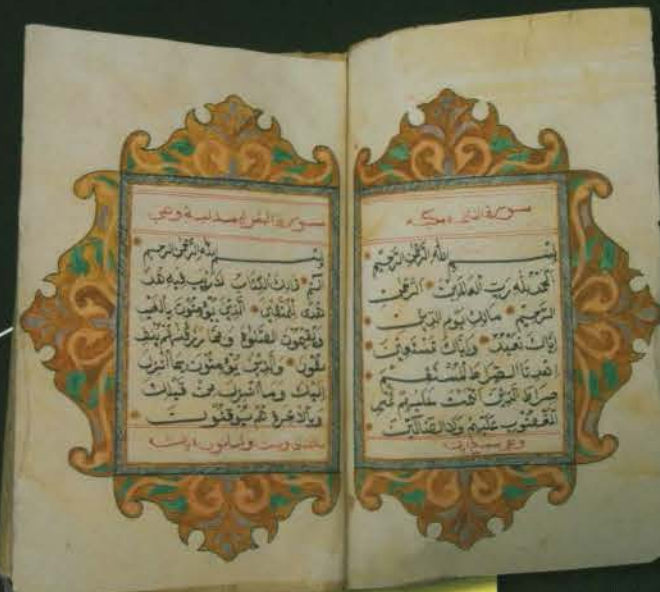 سورة الفاتحة مكية
بسم الله الرحمن الرحيم
الحمد لله رب العلمين الرحمن
الرحيم ملك يوم الدين
اياك نعبد واياك نستعين
اهدنا الصراط المستقيم
صراط الذين انعمت عليهم غير
المغضوب عليهم ولا الضالين
وهي سبع ايات
سورة البقرة مدنية وهي
بسم الله الرحمن الرحيم
الم ذلك الكتاب لا ريب فيه هدى
للمتقين الذين يؤمنون بالغيب
ويقيمون الصلوة ومما رزقنهم ينفقون
والذين يؤمنون بما انزل
اليك وما انزل من قبلك
وبالاخرة هم يوقنون
مائتان وست وثمانون اية